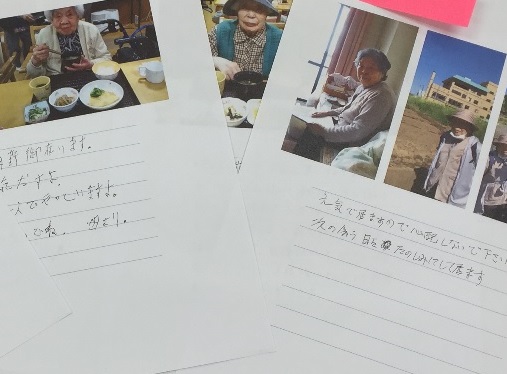 御座います。
ですよ。
でやっていますよ。
ね。 母より。
元気で居ますので心配しないで下さい
次の会う日をたのしみにして居ます